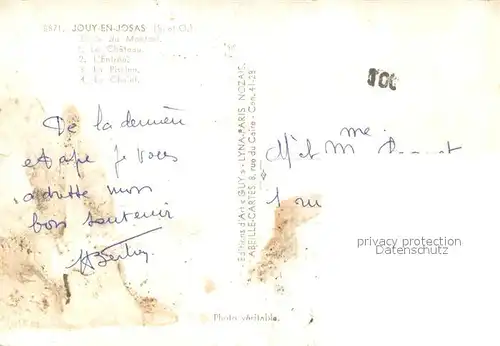 JOUY-EN-JOSAS (S.-et-O.)
du Montcel
1. Le Château.
2. L'Entrée.
3. La Piscine.
4. Le Chalet.
De la dernière
étape je vous
adresse mon
bon souvenir
Editions d'Art « GUY » - LYNA-PARIS NOZAIS,
ABEILLE-CARTES 8, rue du Caire - Cen. 41-29
M et Mme
1 ru
privacy protection
Datenschutz
Photo véritable.